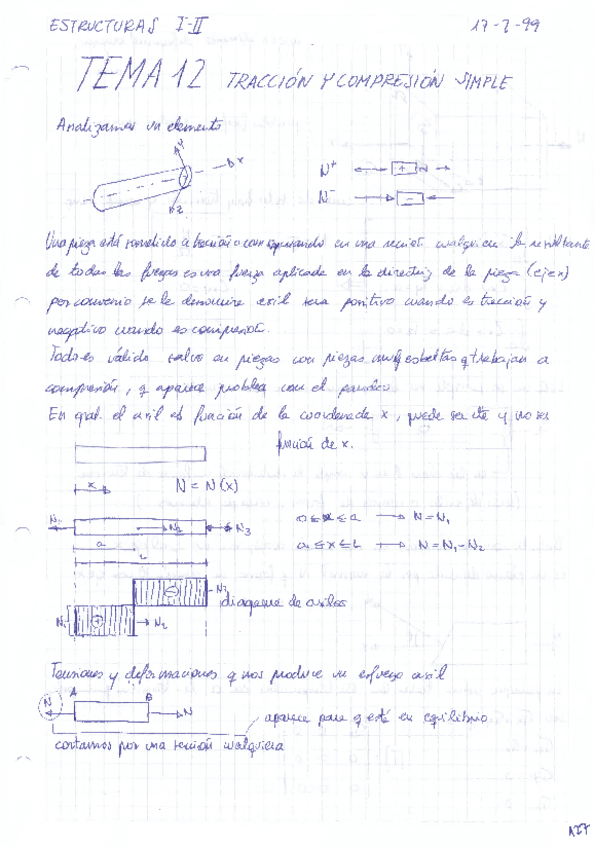 ESTRUCTURAS I-II 17-2-99
TEMA 12 TRACCIÓN Y COMPRESIÓN SIMPLE
Analizamos un elemento
y
x
z
N⁺ +
N⁻ -
Una pieza está sometido a tracción o compresión cuando en una sección cualquiera la resultante
de todas las fuerzas es una fuerza aplicada en la directriz de la pieza (eje x)
por convenio se le denomina axil sera positivo cuando es tracción y
negativo cuando es compresión.
Todo es válido salvo en piezas con piezas muy esbeltas q trabajan a
compresión, q aparece problema con el pandeo
En gral. el axil es función de la coordenada x, puede ser cte y no ser
función de x.
x N = N(x)
N₁ N₂ N₃ 0≤x≤a → N=N₁
a a≤x≤L → N=N₁-N₂
L
N₃
diagrama de axiles
N₁ + N₂
Tensiones y deformaciones q nos produce un esfuerzo axil
N A B N
aparece para q esté en equilibrio
cortamos por una sección cualquiera
127